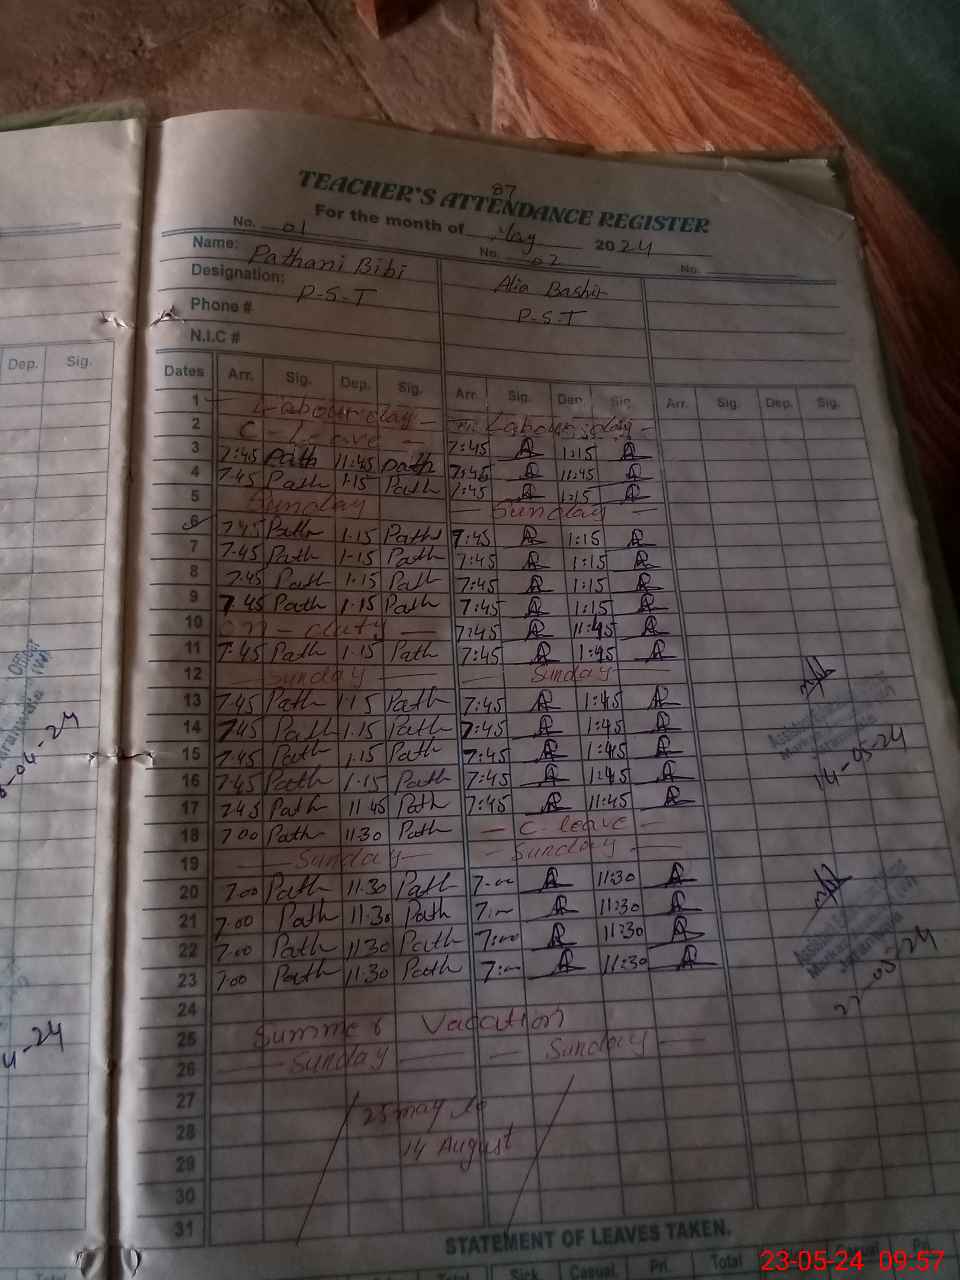 87
TEACHER'S ATTENDANCE REGISTER
For the month of May 2024
No. 01 No. 02 No.
Name: Pathani Bibi Alia Bashir
Designation: P-S-T P-S-T
Phone #
N.I.C #
Dep. Sig.
Dates Arr. Sig. Dep. Sig. Arr. Sig. Dep. Sig. Arr. Sig. Dep. Sig.
1 Labour day Labour day
2 C - Leave 7:45 1:15
3 7:45 Path 11:45 Path 7:45 11:45
4 7:45 Path 1:15 Path 7:45 1:15
5 Sunday Sunday
6 7:45 Path 1:15 Path 7:45 1:15
7 7:45 Path 1:15 Path 7:45 1:15
8 7:45 Path 1:15 Path 7:45 1:15
9 7:45 Path 1:15 Path 7:45 1:15
10 on - duty 7:45 11:45
11 7:45 Path 1:15 Path 7:45 1:45
12 Sunday Sunday
13 7:45 Path 1:15 Path 7:45 1:45
14 7:45 Path 1:15 Path 7:45 1:45
15 7:45 Path 1:15 Path 7:45 1:45
16 7:45 Path 1:15 Path 7:45 1:45
14-05-24
17 7:45 Path 11:45 Path 7:45 11:45
18 7:00 Path 11:30 Path C-leave
19 Sunday Sunday
20 7:00 Path 11:30 Path 7:00 11:30
21 7:00 Path 11:30 Path 7:00 11:30
22 7:00 Path 11:30 Path 7:00 11:30
23 7:00 Path 11:30 Path 7:00 11:30
24
25 Summer Vacation
26 Sunday Sunday
27 25 may to
28 14 August
29
30
31
STATEMENT OF LEAVES TAKEN.
Total Sick Casual Pri. Total
23-05-24 09:57